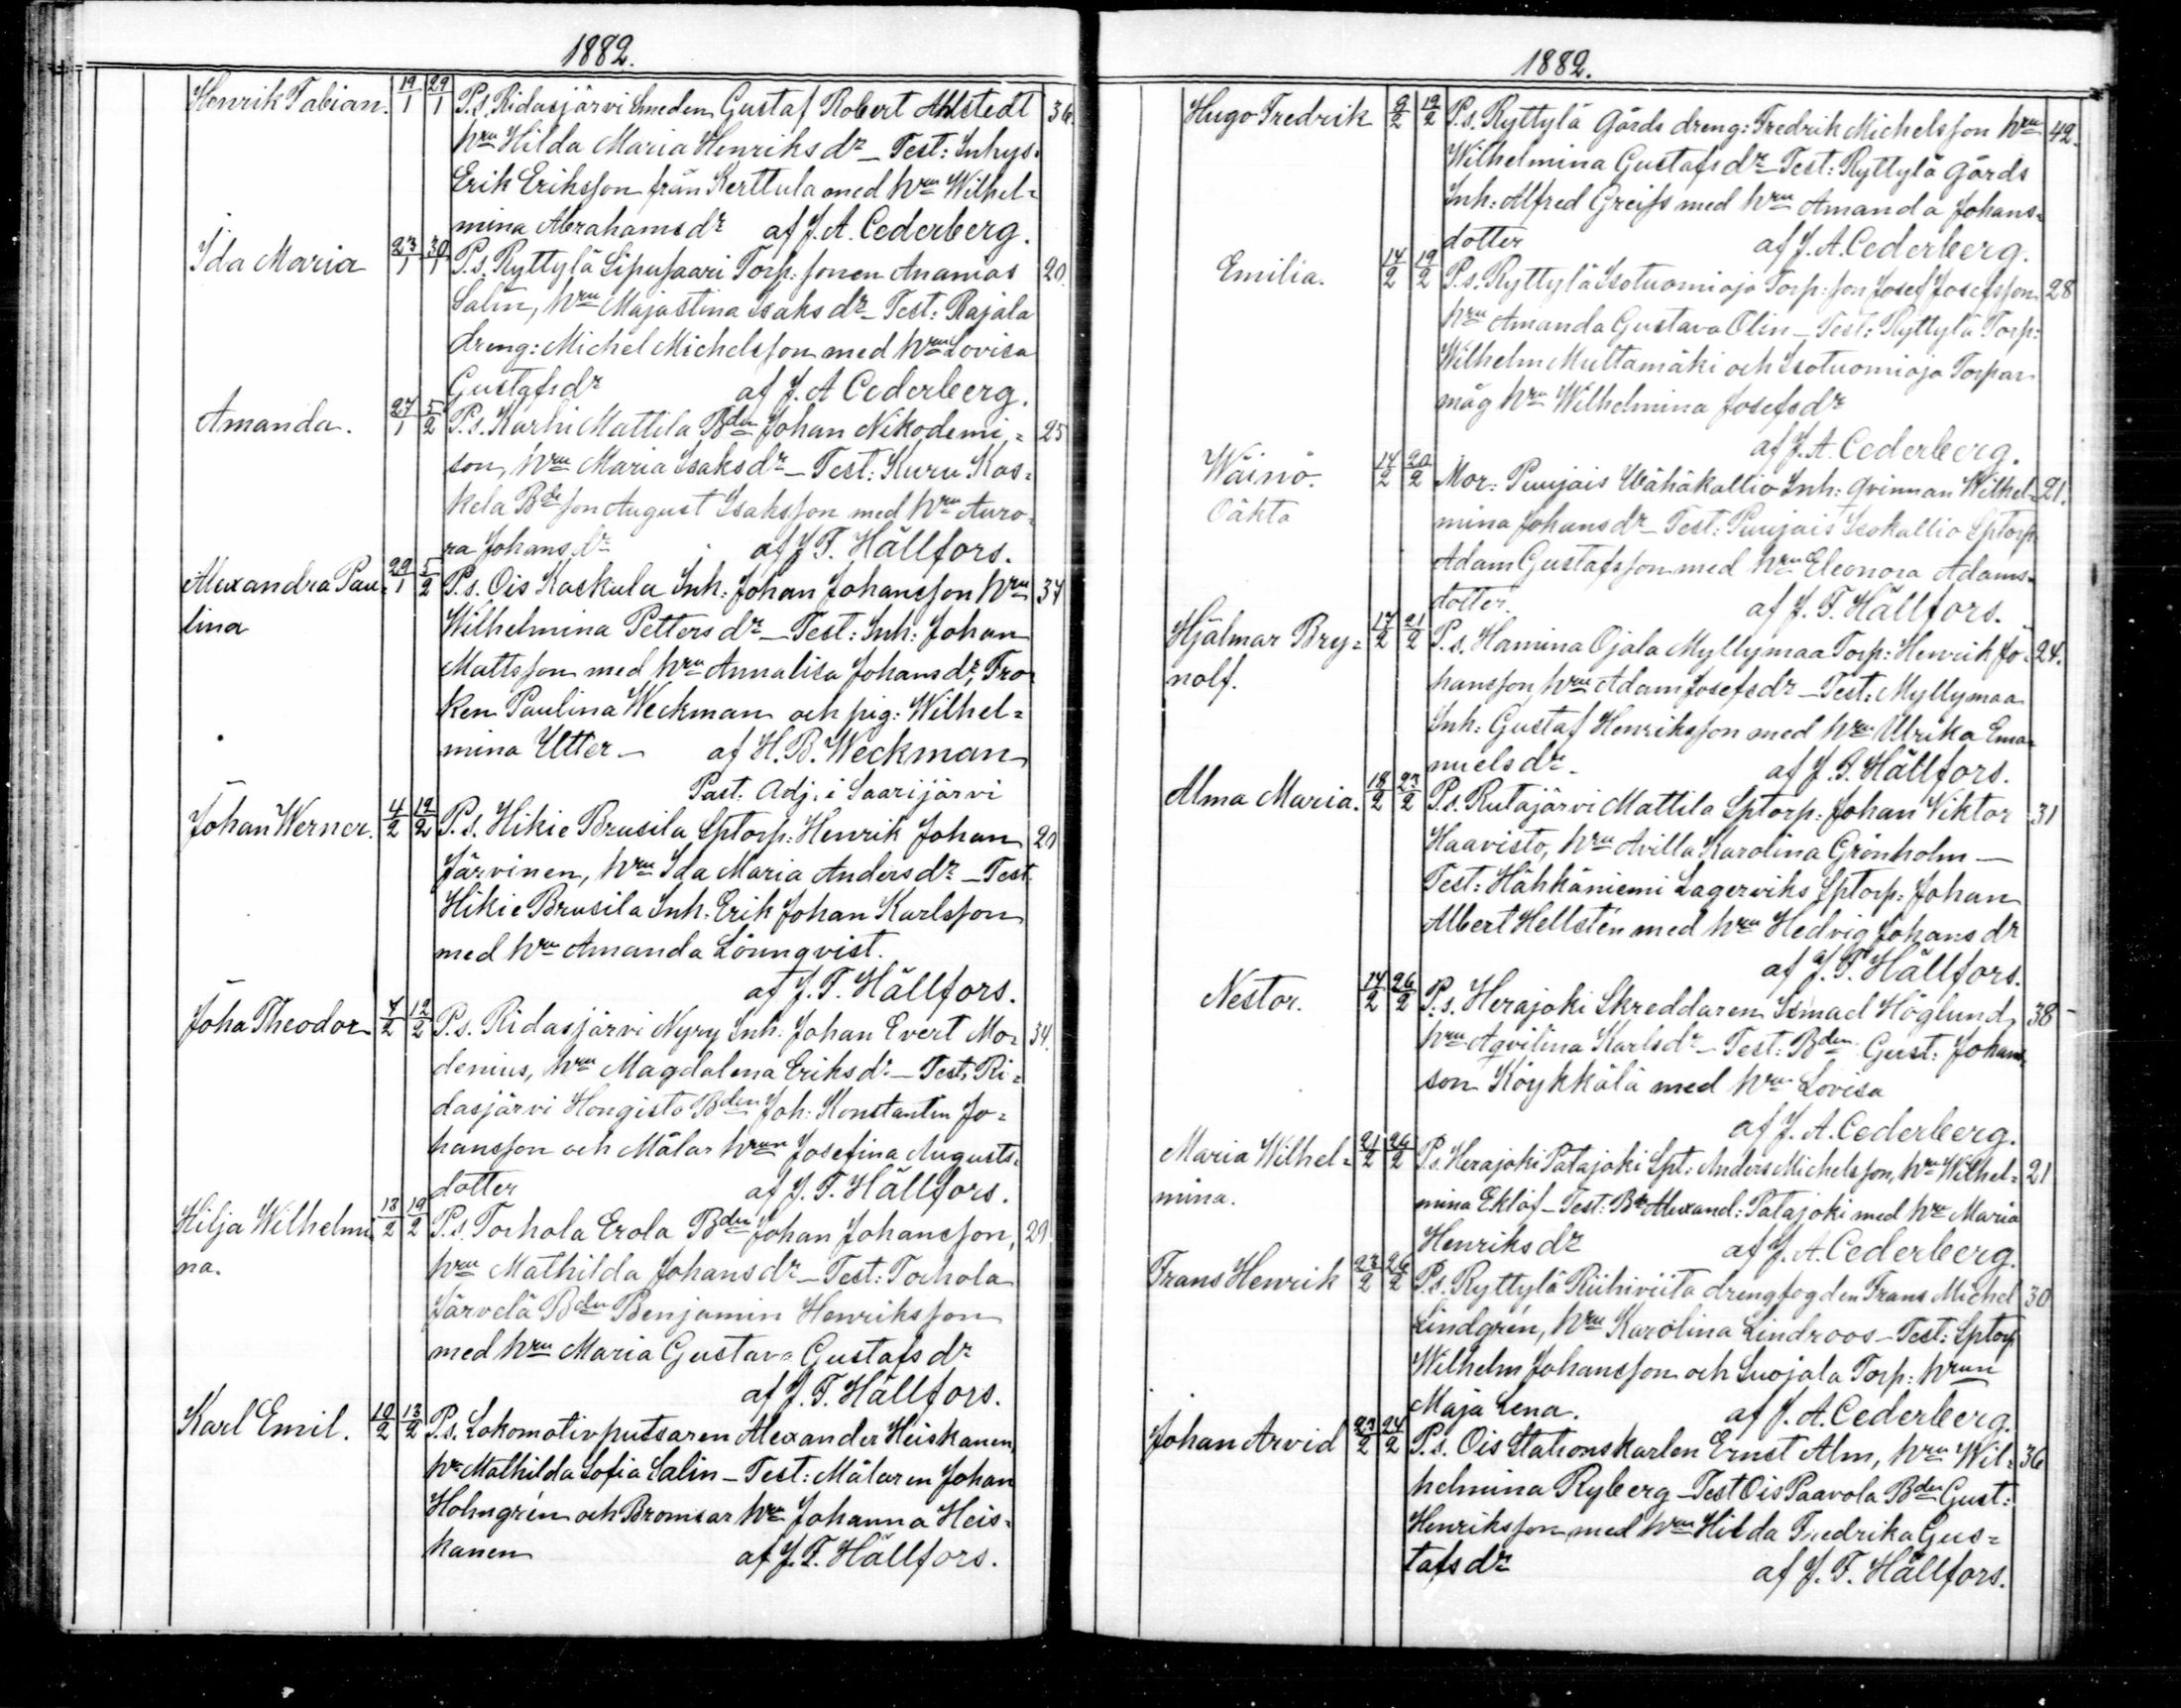 1882.
Henrik Fabian. 19/1 29/1 P.s. Ridasjärvi Smeden Gustaf Robert Ahlstedt 36.
hru Hilda Maria Henriksdr – Test: Inhys.
Erik Eriksson från Kerttula med hru Wilhel=
mina Abrahamsdr af J. A. Cederberg.
Ida Maria 23/1 30/1 P.s. Ryttylä Sipusaari Torp: sonen Ananias 20.
Salin, hru Majastina Isaksdr – Test: Rajala
dreng: Michel Michelsson med hru Lovisa
Gustafsdr af J. A Cederberg.
Amanda. 27/1 5/2 P.s. Karhi Mattila Bden Johan Nikodemi= 25
son, hru Maria Isaksdr – Test: Kuru Kos=
kela Bde son August Isaksson med hru Auro=
ra Johansdr af J. F. Hällfors.
Alexandra Pau= 29/1 5/2 P.s. Ois Kaskula Inh: Johan Johansson hru 37
lina Wilhelmina Petters dr – Test: Inh: Johan
Mattsson med hru Annalisa Johansdr, Frö=
ken Paulina Weckman och pig: Wilhel=
mina Utter – af H. B. Weckman
Past. Adj. i Saarijärvi
Johan Werner. 4/2 12/2 P.s. Hikie Brusila Sptorp: Henrik Johan 20
Järvinen, hru Ida Maria Andersdr – Test.
Hikie Brusila Inh. Erik Johan Karlsson
med hru Amanda Lönnqvist.
af J. F. Hällfors.
Joha Theodor 7/2 12/2 P.s. Ridasjärvi Nyry Inh. Johan Evert Mo= 34.
denius, hru Magdalena Eriksdr – Test. Ri=
dasjärvi Hongisto Bden Joh: Konstantin Jo=
hansson och Målar hrun Josefina Augusts=
dotter af J. F. Hällfors.
Hilja Wilhelmi 13/2 19/2 P.s. Torhola Erola Bden Johan Johansson, 29
na. hru Mathilda Johansdr – Test: Torhola
Järvelä Bden Benjamin Henriksson
med hru Maria Gustava Gustafsdr
af J. F. Hällfors.
Karl Emil. 10/2 13/2 P.s. Lokomotivputsaren Alexander Heiskanen,
hru Mathilda Sofia Salin – Test: Målaren Johan
Holmgrén och Bromsar hru Johanna Heis=
kanen af J. F. Hällfors.
1882.
Hugo Fredrik 9/2 19/2 P.s. Ryttylä Gårds dreng: Fredrik Michelsson hru 42.
Wilhelmina Gustafsdr – Test: Ryttylä Gårds
Inh: Alfred Greifs med hru Amanda Johans=
dotter af J. A. Cederberg.
Emilia. 14/2 19/2 P.s. Ryttylä Isotuomioja Torp: son Josef Josefsson 28
hru Amanda Gustava Olin – Test: Ryttylä Torp:
Wilhelm Multamäki och Isotuomioja Torpar
måg hru Wilhelmina Josefsdr
af J. A. Cederberg.
Wäinö. 14/2 20/2 Mor: Puujais Wähäkallio Inh: qvinnan Wilhel= 21.
Oäkta mina Johansdr – Test: Puujais Isokallio Sptorp
Adam Gustafsson med hru Eleonora Adams=
dotter. af J. F. Hällfors.
Hjälmar Bry= 17/2 21/2 P.s. Hamina Ojala Myllymaa Torp: Henrik Jo= 24.
nolf. hansson, hru Adam Josefsdr – Test: Myllymaa
Inh: Gustaf Henriksson med hru Ulrika Ema=
nuelsdr. af J. F. Hällfors.
Alma Maria. 18/2 23/2 P.s. Rutajärvi Mattila Sptorp: Johan Viktor 31
Haavisto, hru Avilla Karolina Grönholm –
Test: Hähkäniemi Lagerviks Sptorp: Johan
Albert Hellstén med hru Hedvig Johansdr
af J. F. Hällfors.
Nestor. 14/2 26/2 P.s. Herajoki Skreddaren Ismael Höglund, 38
hru Aqvilina Karlsdr – Test: Bden Gust: Johans=
son Köykkälä med hru Lovisa
af J. A. Cederberg.
Maria Wilhel= 21/2 26/2 P.s. Herajoki Patajoki Spt: Anders Michelsson, hru Wilhel= 21
mina. mina Eklöf – Test: Bde Alexand: Patajoki med hru Maria
Henriksdr af J. A. Cederberg.
Frans Henrik 23/2 26/2 P.s. Ryttylä Riihiviita drengfogden Frans Michel 30
Lindgrén, hru Karolina Lindroos – Test: Sptorp
Wilhelm Johansson och Suojala Torp: hrun
Maja Lena. af J. A. Cederberg.
Johan Arvid 23/2 24/2 P.s. Ois Stationskarlen Ernst Alm, hru Wil= 36
helmina Ryberg – Test Ois Paavola Bden Gust:
Henriksson med hru Hilda Fredrika Gus=
tafsdr af J. F. Hällfors.